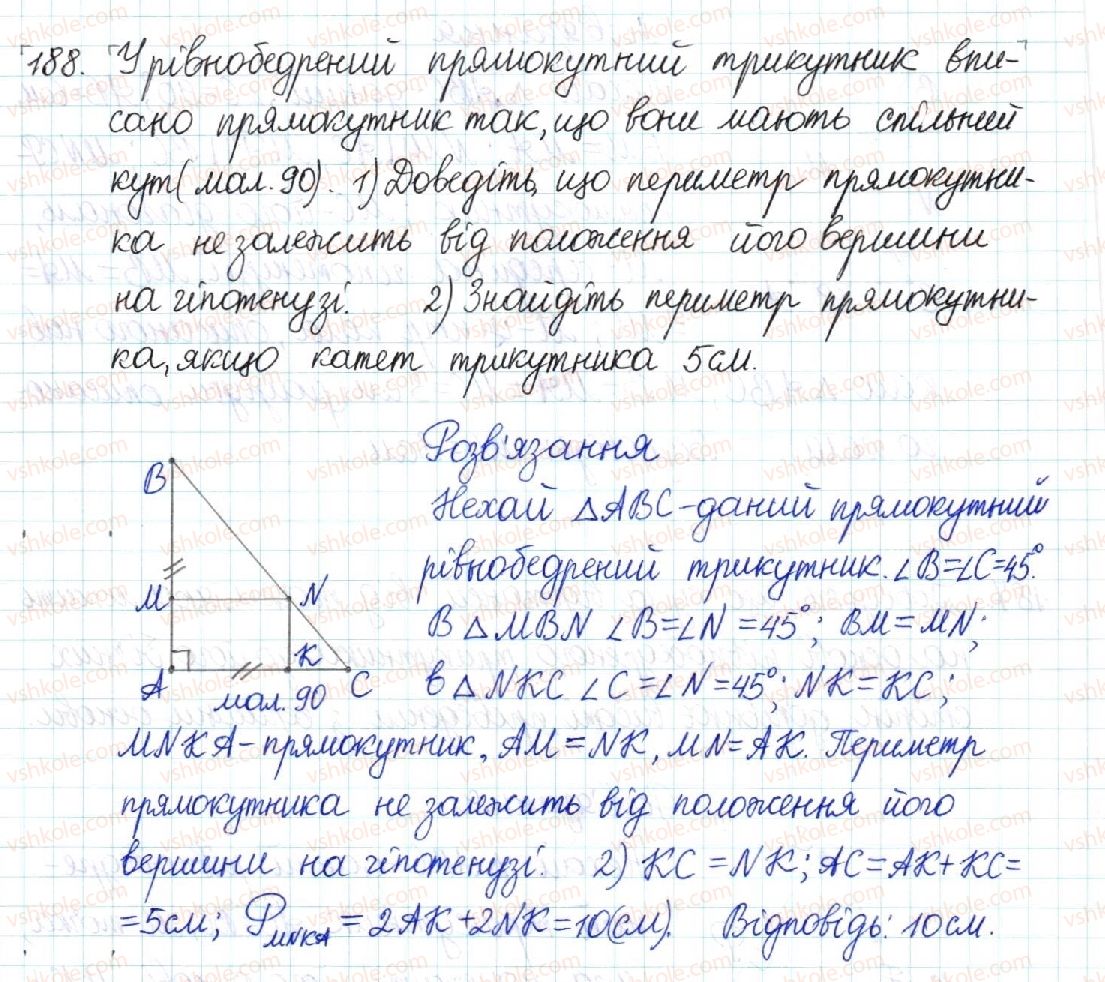 188. У рівнобедрений прямокутний трикутник впи-
сано прямокутник так, що вони мають спільний
кут (мал. 90). 1) Доведіть, що периметр прямокутни-
ка не залежить від положення його вершини
на гіпотенузі. 2) Знайдіть периметр прямокутни-
ка, якщо катет трикутника 5см.
Розв'язання
Нехай △ABC - даний прямокутний
рівнобедрений трикутник. ∠B=∠C=45°.
В △MBN ∠B=∠N=45°; BM=MN;
в △NKC ∠C=∠N=45°; NK=KC;
B
M
N
A
K
C
мал. 90
MNKA - прямокутник, AM=NK, MN=AK. Периметр
прямокутника не залежить від положення його
вершини на гіпотенузі. 2) KC=NK; AC=AK+KC=
=5см; P_MNKA=2AK+2NK=10(см). Відповідь: 10см.